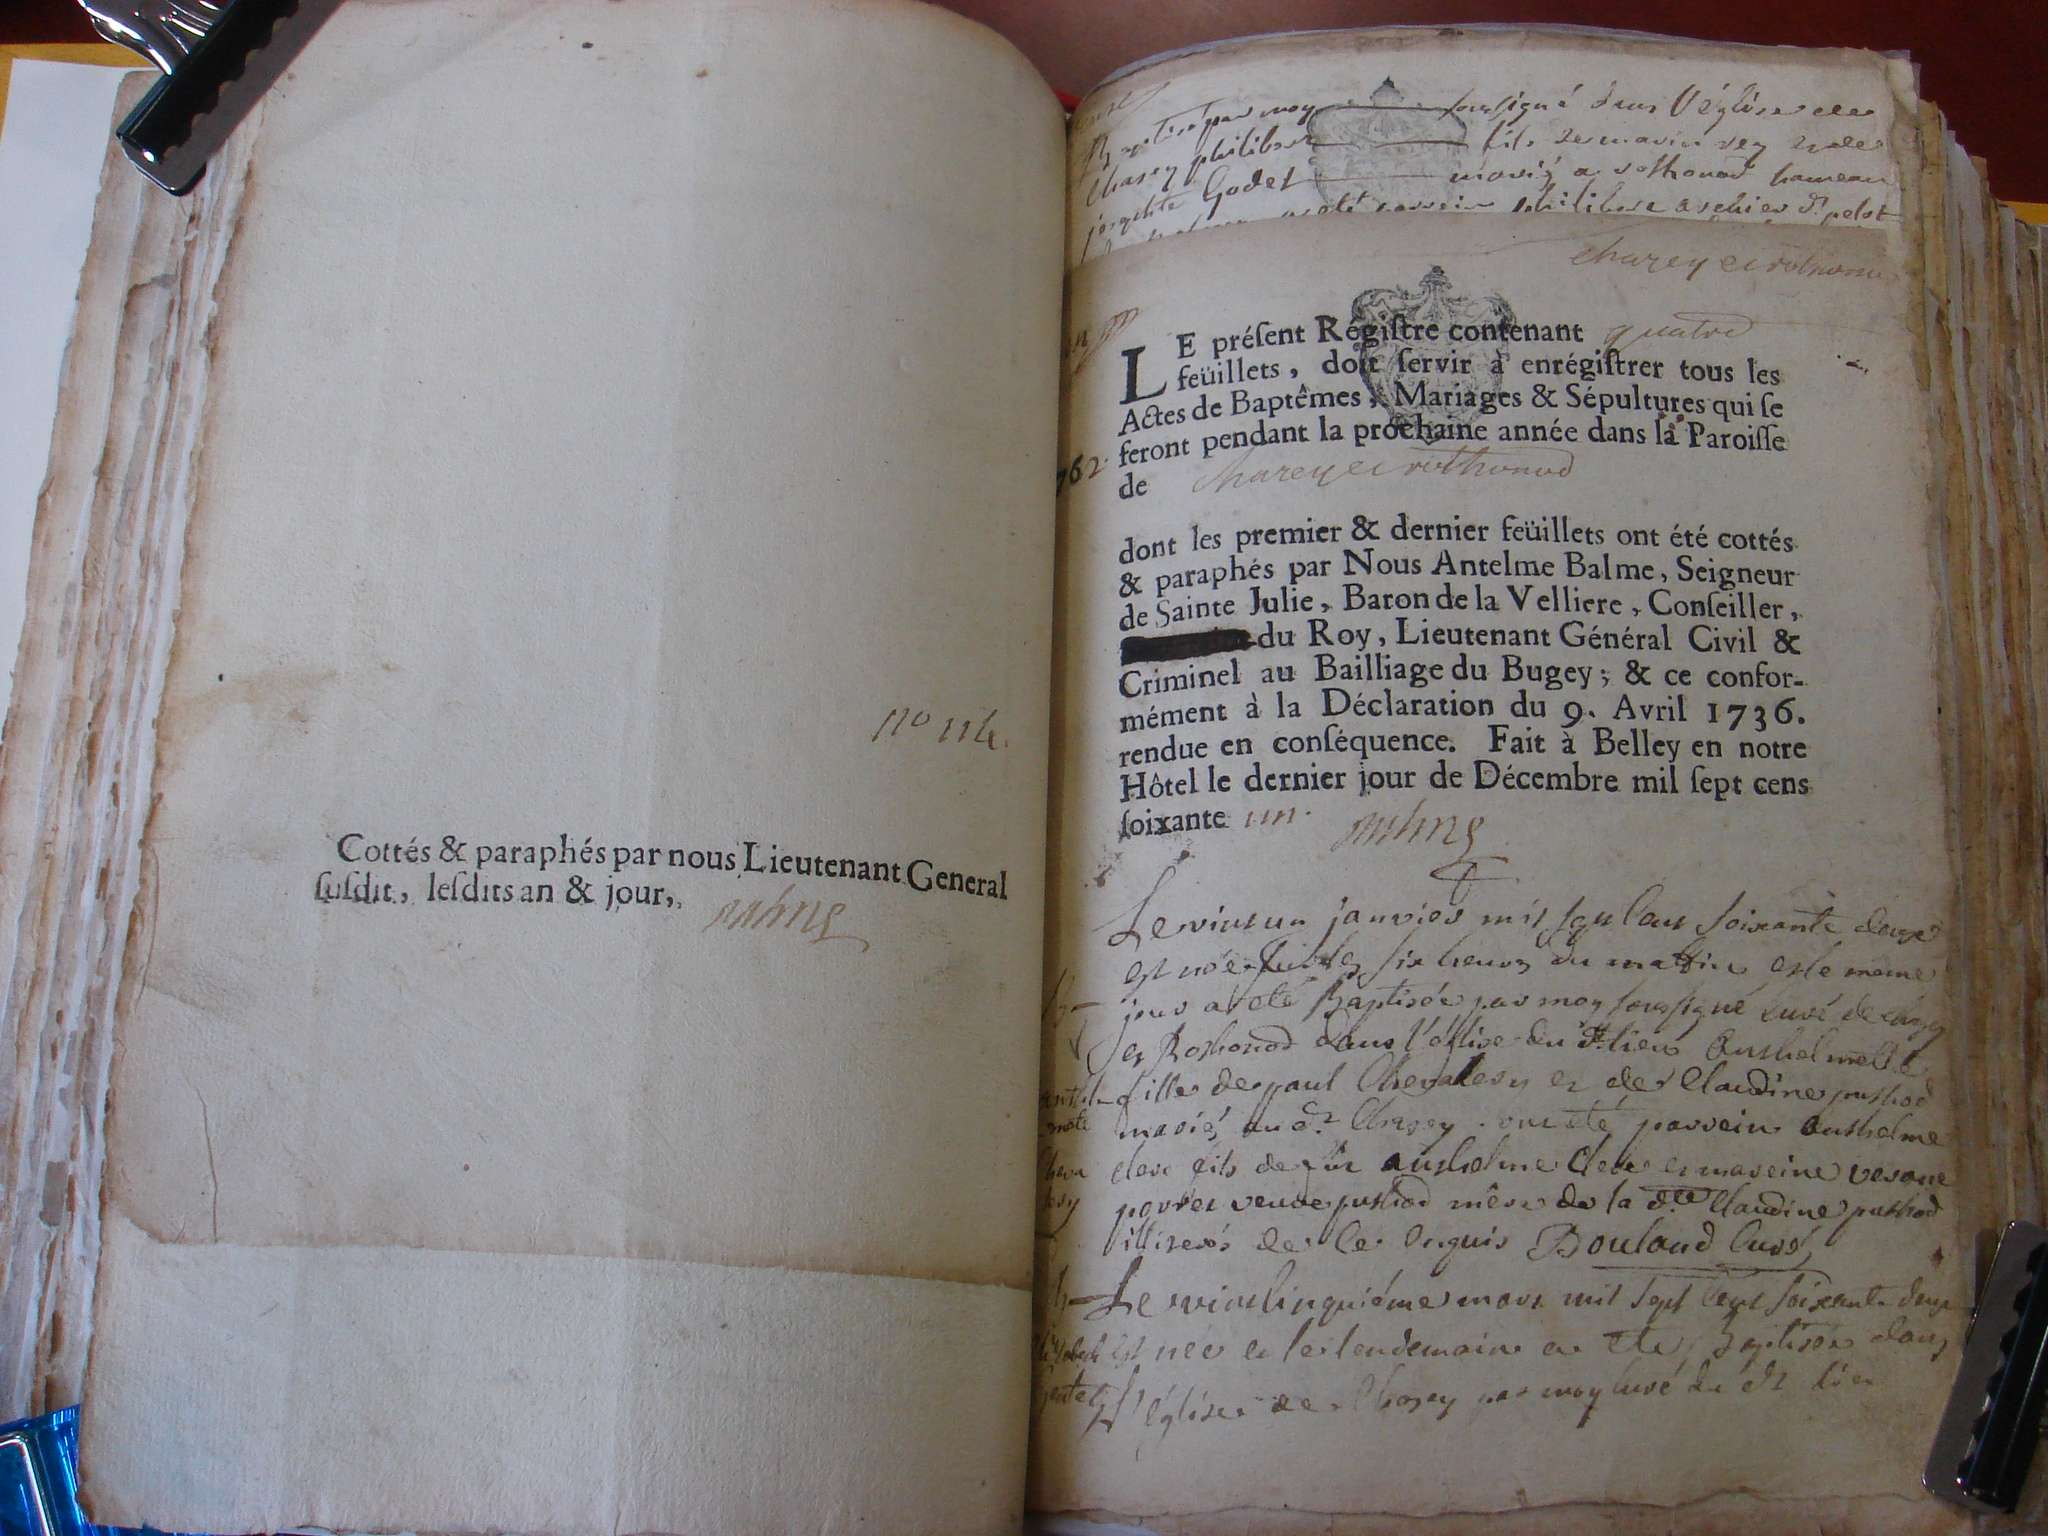 no 114.
Cottés & paraphés par nous Lieutenant General
susdit, lesdits an & jour,
Balme
Baptisé par moy soussigné dans l'église de
Charey philibert fils de marin rey et de
josephte Godet mariés a rothonod hameau
parrein philibert
Charey et rothonod
LE présent Régistre contenant quatre
feüillets, doit servir à enrégistrer tous les
Actes de Baptêmes, Mariages & Sépultures qui se
feront pendant la prochaine année dans la Paroisse
de Charey et rothonod
1762
dont les premier & dernier feüillets ont été cottés
& paraphés par Nous Antelme Balme, Seigneur
de Sainte Julie, Baron de la Velliere, Conseiller,
du Roy, Lieutenant Général Civil &
Criminel au Bailliage du Bugey; & ce confor-
mément à la Déclaration du 9. Avril 1736.
rendue en conséquence. Fait à Belley en notre
Hôtel le dernier jour de Décembre mil sept cens
soixante un.
Balme
Le vint un janvier mil sept cent soixante deux
est née six heures du mattin et le meme
jour a eté Baptisée par moy soussigné Curé de Chasey
et Rothonod dans l'église du dt lieu Anthelmette
fille de paul Chevalery et de Claudine puthod
mariés au dt Chasey. ont eté parrein Anthelme
clere fils de feu Anthelme Clere et mareine
veuve puthod mère de la dte Claudine puthod
illiterés de ce enquis Bouland Curé
Le vint cinquième mars mil sept cent soixante deux
est née et le lendemain a eté Baptisée dans
l'église de Chasey par moy curé du dt lieu